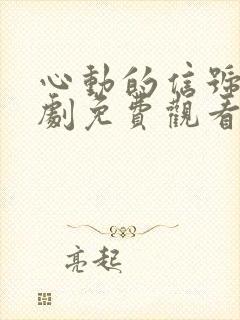 心動的信號
劇免費觀看
亮起